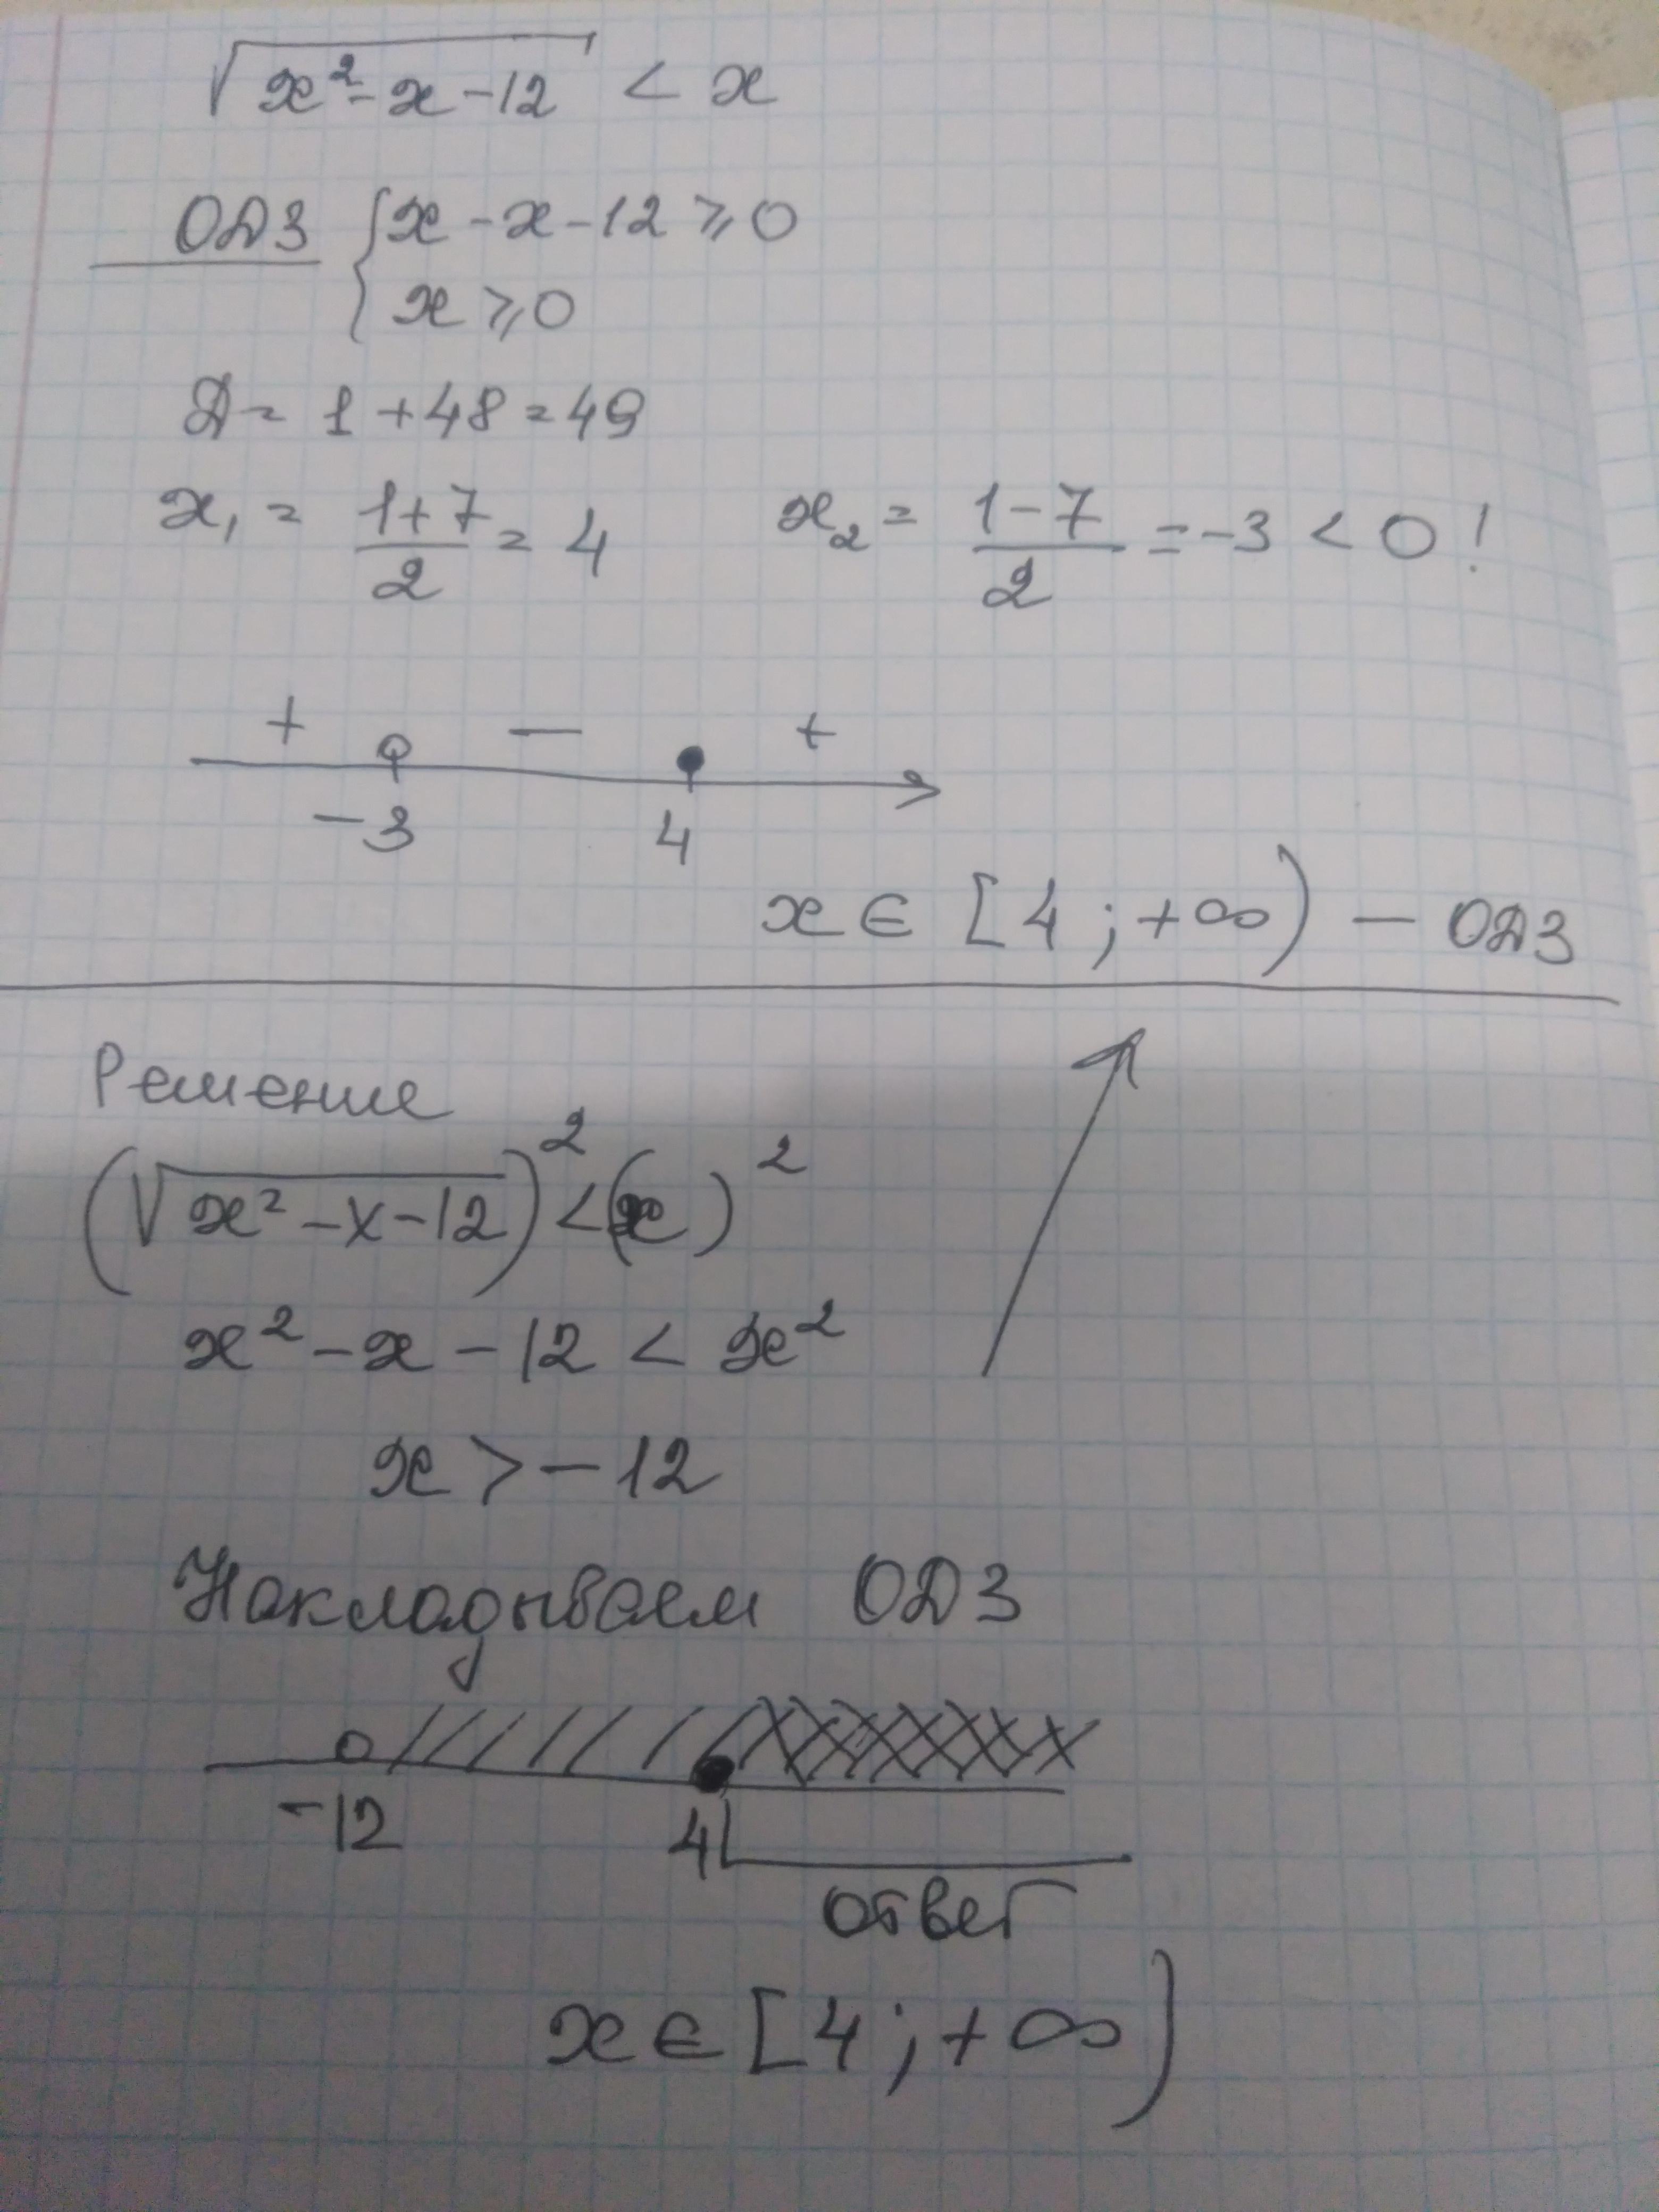 √(x² - x - 12) < x
ОДЗ { x - x - 12 ≥ 0
x ≥ 0
Д = 1 + 48 = 49
x₁ = (1+7)/2 = 4    x₂ = (1-7)/2 = -3 < 0 !
+ - +
-3 4
x ∈ [4 ; +∞) - ОДЗ
Решение
(√(x² - x - 12))² < (x)²
x² - x - 12 < x²
x > -12
Накладываем ОДЗ
-12 4
ответ
x ∈ [4 ; +∞)